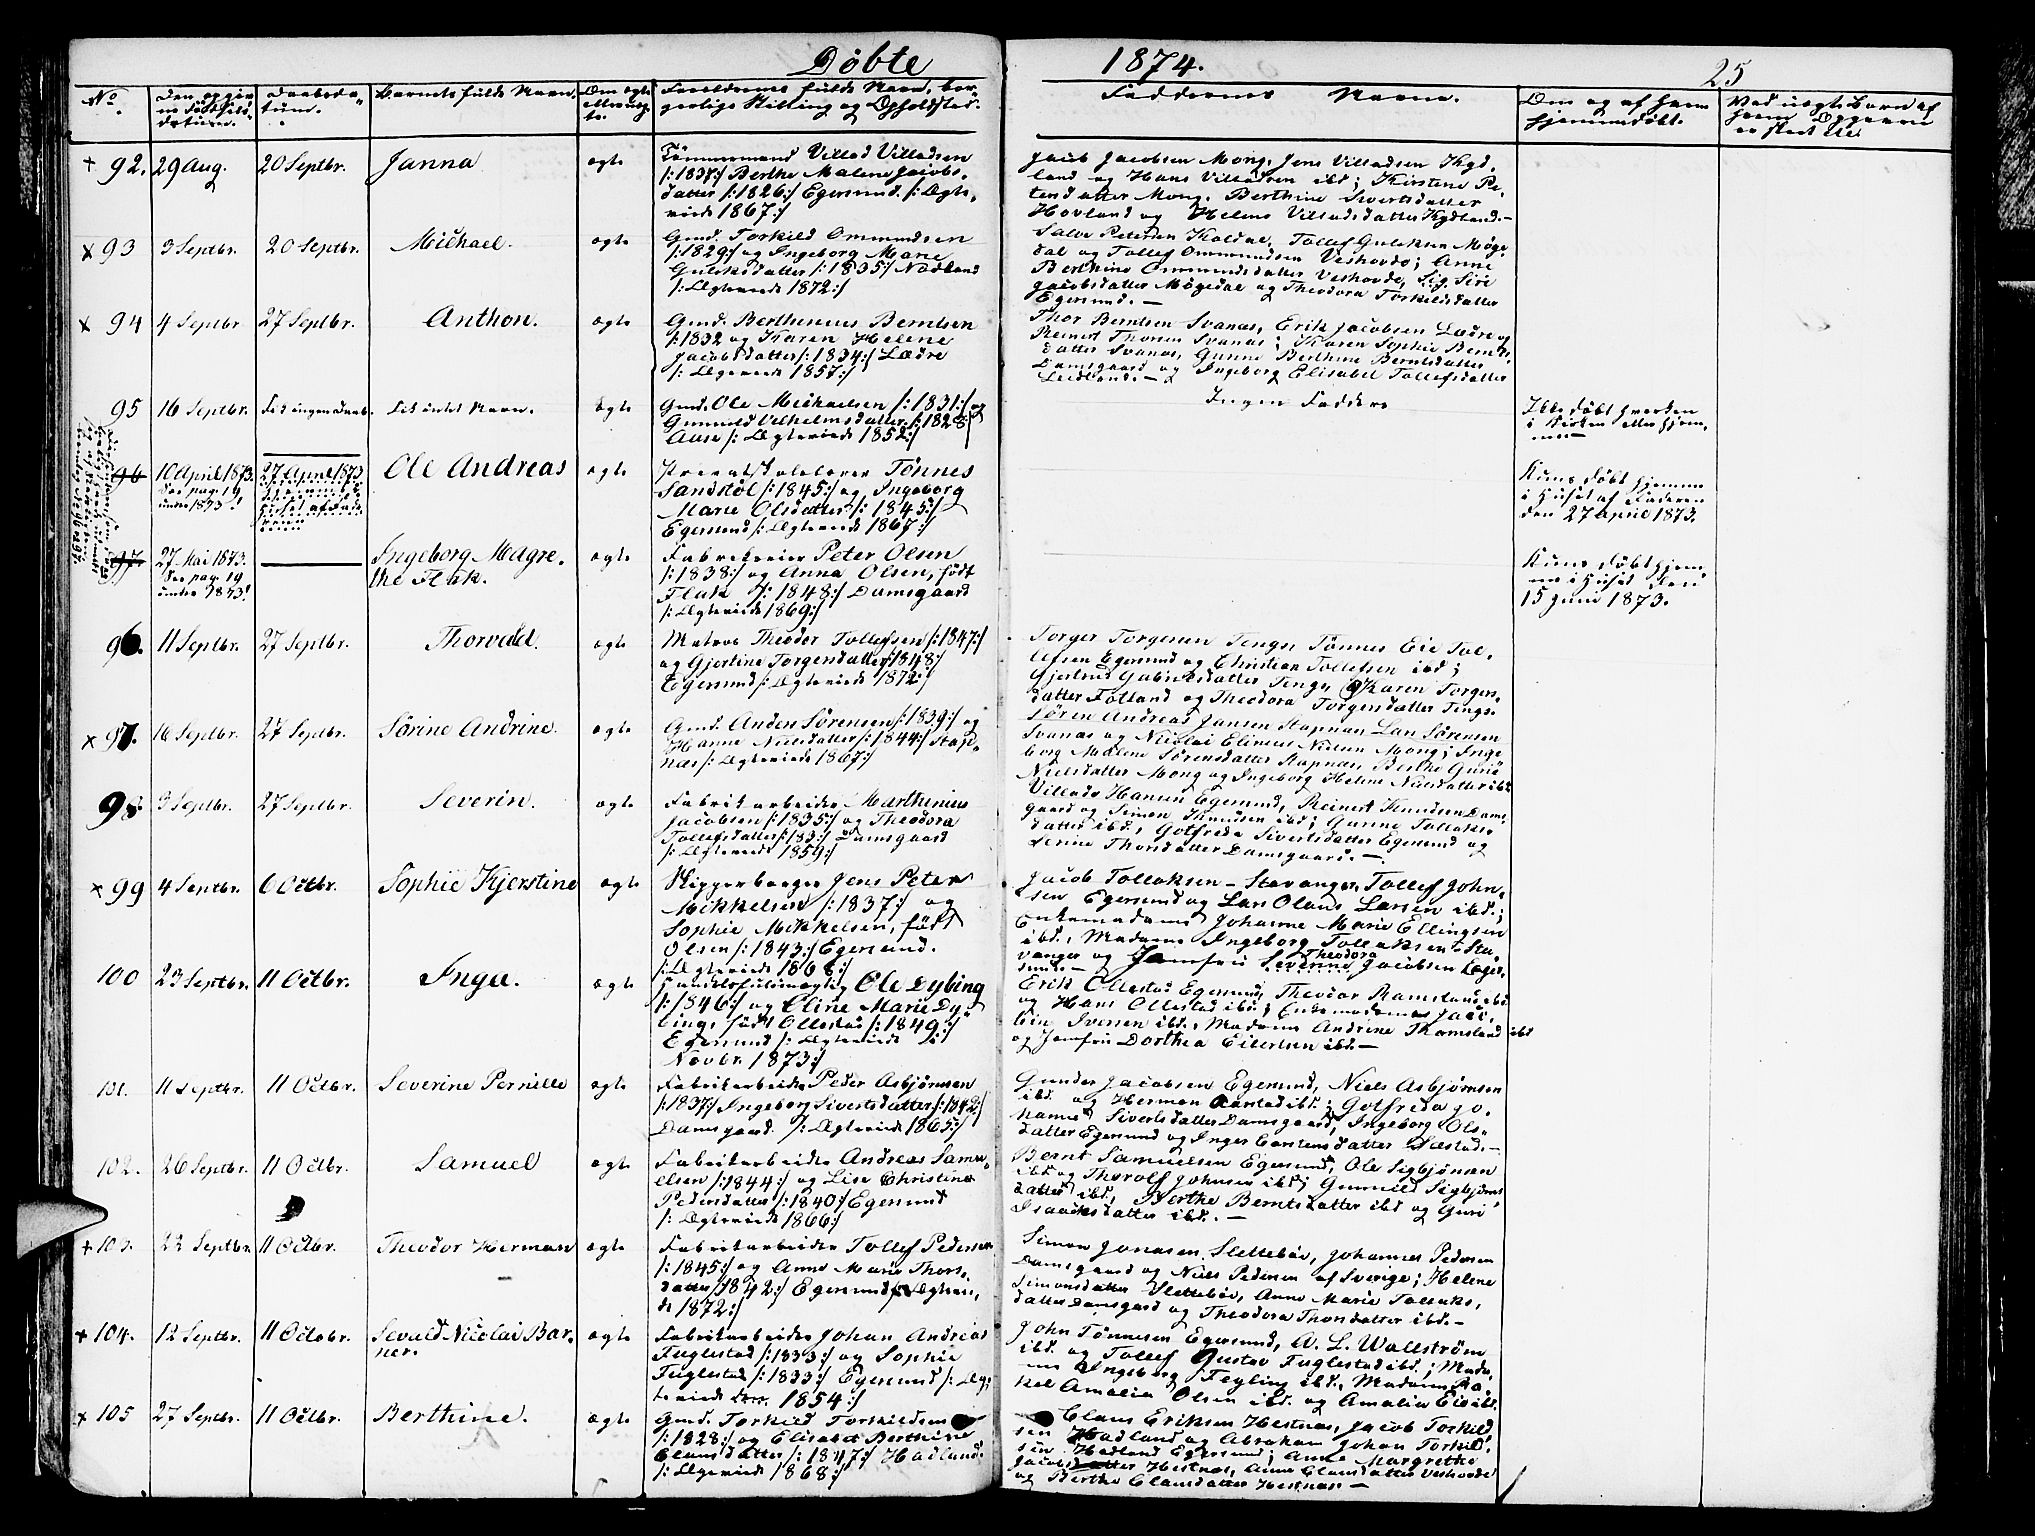 Döbte
1874.
25
No.
Barnets fulde Navn.
Faddernes Navne.
92. 29 Aug. 20 Septbr. Janna ægte
Tömmermand Villad Villadsen
/:1837:/ Berthe Malene Jacobs-
datter /:1826:/ Egersund. /: Ægte-
viede 1867:/
Jacob Jacobsen Mong, Jens Villadsen Kyd-
land og Hans Villadsen ibd; Kirstene Pe-
tersdatter Mong, Berthine Sivertsdatter
Hovland og Helene Villadsdatter Kydland.-
93 3 Septbr. 20 Septbr. Michael. ægte
Gmd. Torkild Ommundsen
/:1829:/ og Ingeborg Marie
Guleksdatter /:1835:/ Nodland
/: Ægteviede 1872:/
Salve Petersen Koldal, Tollef Guleksen Möge-
dal og Tollef Ommundsen Veshovde; Anne
Berthine Ommundsdatter Veshovde, Sig. Siri
Jacobsdatter Mögedal og Theodora Torkildsdatter
Egersund.-
94 4 Septbr 27 Septbr. Anthon. ægte
Gmd. Berthinius Berntsen
/:1832 og Karen Helene
Jacobsdatter /:1834:/ Lædre
/: Ægteviede 1857:/
Thor Berntsen Svanæs, Erik Jacobsen Lædre og
Reinert Thorsen Svanæs; Karen Sophie Bernts-
datter Svanæs, Gunne Berthine Berntsdatter
Damsgaard og Ingeborg Elisabet Tollefsdatter
Leidland.-
95 16 Septbr. Fik ingen Daab. Fik intet Navn. ægte
Gmd. Ole Michaelsen /:1831:/ og
Gunnild Vilhelmsdatter /:1828:/
Aase /: Ægteviede 1852:/
Ingen Faddere
Ikke döbt hverken
i Kirken eller hjem-
me
96 10 April 1873. 27 April 1873 Ole Andreas ægte
See pag. 19
under 1873!
Privatskolelærer Tönnes
Sandstöl /:1845:/ og Ingeborg
Marie Olsdatter /:1845:/
Egersund /: Ægteviede 1867:/
Kuns döbt hjemme
i Huset af Faderen
den 27 April 1873.
97 27 Mai 1873. Ingeborg Magre-
the Flak. ægte
See pag. 19
under 1873!
Fabrikeier Peter Olsen
/:1838:/ og Anna Olsen, födt
Flak /:1848:/ Damsgaard
/: Ægteviede 1869:/
Kuns döbt hjem-
me i Huset den
15 Juni 1873.
96. 11 Septbr. 27 Septbr. Thorvald. ægte
Matros Theodor Tollefsen /:1847:/
og Gjertine Torgersdatter /:1848:/
Egersund /: Ægteviede 1872:/
Torger Torgersen Tengs, Tönnes Eie Tol-
lefsen Egersund og Christian Tollefsen ibd;
Gjertrud Gabrielsdatter Tengs, Karen Torgers-
datter Fotland og Theodora Torgersdatter Tengs.
97. 16 Septbr. 27 Septbr. Sörine Andrine. ægte
Gmd. Anders Sörensen /:1839:/ og
Hanne Nielsdatter /:1844:/ Stap-
næs /: Ægteviede 1867:/
Sören Andreas Jansen Stapnæs, Lars Sörensen
Svanæs og Nicolai Elineus Nielsen Mong; Inge-
borg Malene Sörensdatter Stapnæs, Berthe Gurie
Nielsdatter Mong og Ingeborg Helene Nielsdatter ibd.
98 3 Septbr. 27 Septbr. Severin. ægte
Fabrikarbeider Marthinius
Jacobsen /:1835:/ og Theodora
Tollefsdatter /:183:/ Damsgaard
/: Ægteviede 1859:/
Villads Hansen Egersund, Reinert Knudsen Dams-
gaard og Simon Knudsen ibd; Gurine Tollaks-
datter ibd., Gotfreda Sivertsdatter Egersund og
Lenne Thorsdatter Damsgaard.-
99 4 Septbr. 6 Octbr. Sophie Kjerstine ægte
Skipperborger Jens Peter
Mikkelsen /:1837:/ og
Sophie Mikkelsen, födt
Olsen /:1843:/ Egersund.
/: Ægteviede 1868:/
Jacob Tollaksen - Stavanger, Tollef John-
sen Egersund og Lars Olaus Larsen ibd.;
Enkemadame Johanne Marie Ellingsen
ibd., Madame Ingeborg Tollaksen - Sta-
vanger og Jomfru Severine Theodora Jacobsen Eger-
sund.-
100 23 Septbr. 11 Octbr. Inga. ægte
Handelsfuldmægtig Ole Dybing
/:1846:/ og Eline Marie Dy-
bing, födt Ollestad /:1849:/
Egersund /: Ægteviede
Novbr. 1873:/
Erik Ollestad Egersund, Theodor Ramsland ibd
og Hans Ollestad ibd.; Enkemadame Jaco-
bine Iversen ibd., Madame Andrine Ramsland ibd
og Jomfru Dorthea Eilertsen ibd.-
101. 11 Septbr. 11 Octbr. Severine Pernille ægte
Fabrikarbeider Peder Asbjörnsen
/:1837:/ Ingeborg Sivertsdatter /:1842:/
Damsgaard. /: Ægteviede 1865:/
Gunder Jacobsen Egersund, Niels Asbjörnsen
ibd. og Herman Aarstad ibd.; Gotfreda Jo-
hanne Sivertsdatter Damsgaard, Ingeborg Ols-
datter Egersund og Inger Carstensdatter Sæstad.-
102. 26 Septbr. 11 Octbr. Samuel ægte
Fabrikarbeider Andreas Samu-
elsen /:1844:/ og Lise Christine
Pedersdatter /:1840:/ Egersund
/: Ægteviede 1866:/
Bernt Samuelsen Egersund, Ole Sigbjörnsen
ibd. og Thorolf Johnsen ibd; Gunnild Sigbjörns-
datter ibd., Berthe Berntsdatter ibd og Guri
Isaacksdatter ibd.-
103. 22 Septbr. 11 Octbr. Theodor Herman ægte
Fabrikarbeider Tollef Pedersen
/:1845:/ og Anne Marie Thors-
datter /1842:/ Egersund /: Ægtevie-
de 1872:/
Simon Jonassen Slettebö, Johannes Pedersen
Damsgaard og Niels Pedersen af Sverige; Helene
Simonsdatter Slettebö, Anne Marie Tollaks-
datter Damsgaard og Theodora Thorsdatter ibd.-
104. 12 Septbr. 11 Octobr. Sevald Nicolai Bar-
ner. ægte
Fabrikarbeider Johan Andreas
Fuglestad /:1833:/ og Sophie
Fuglestad /:1833:/ Egersund /: Æg-
teviede 1854:/
John Tönnesen Egersund, A. L. Wallström
ibd. og Tollef Gustav Fuglestad ibd.; Mada-
me Ingeborg Feyling ibd., Madame Ra-
kel Amalia Olsen ibd. og Amalia Eie ibd.
105 27 Septbr. 11 Octbr. Berthine. ægte
Gmd. Torkild Torkildsen
/:1828:/ og Elisabet Berthine
Clausdatter /:1847:/ Hadland.
/: Ægteviede 1868:/
Claus Eriksen Hestnæs, Jacob Torkild-
sen Hadland og Abraham Johan Torkild-
sen Hadland Egersund; Anne Margrethe
Jacobsdatter Hestnæs, Anne Clausdatter Veshovde
og Berthe Clausdatter Hestnæs-